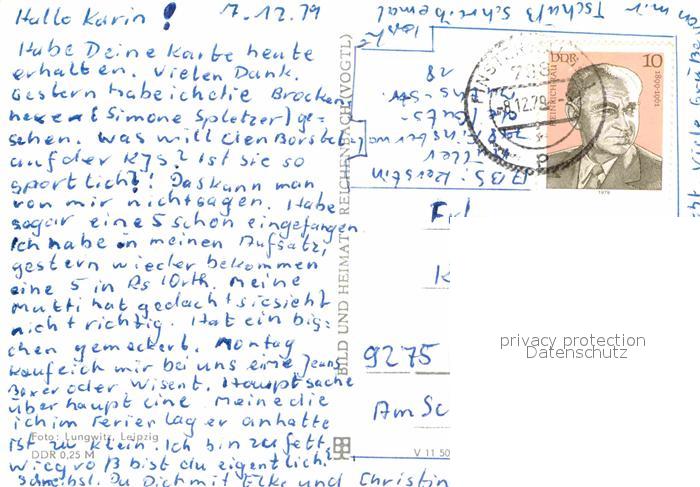 Hallo Karin! 7.12.79
Habe Deine Karte heute
erhalten. Vielen Dank.
Gestern habe ich die Brocken
hexe (Simone Spletzer) ge-
sehen. Was will die in Borsteh
auf der KJS? Ist sie so
sportlich?! Das kann man
von mir nicht sagen. Habe
sogar eine 5 schon eingefangen.
Ich habe in meinen Aufsatz,
gestern wieder bekommen
eine 5 in Rs/Orth. Meine
Mutti hat gedacht sie sieht
nicht richtig. Hat ein bis-
chen gemeckert. Montag
kauf ich mir bei uns eine Jeans
Boxer oder Wisent. Hauptsache
überhaupt eine. Meine die
ich im Ferienlager anhatte
ist zu klein. Ich bin zu fett.
Wie groß bist du eigentlich.
Schreibst Du Dich mit Elke und Christin
von mir Tschüß schreib mal
ABS: Kerstin
9275
Am Sc
BILD UND HEIMAT REICHENBACH (VOGTL)
Foto: Lungwitz, Leipzig
DDR 0,25 M
V 11 50
DDR 10
HEINRICH RAU 1899-1961
1979
-8.12.79
privacy protection
Datenschutz